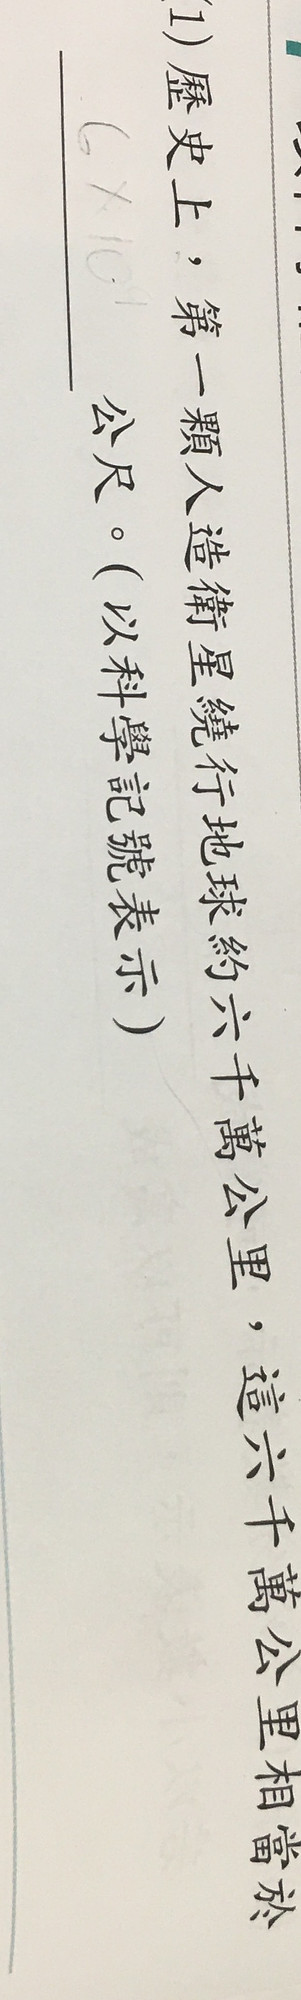 (1) 歷史上，第一顆人造衛星繞行地球約六千萬公里，這六千萬公里相當於
6×10 公尺。(以科學記號表示)